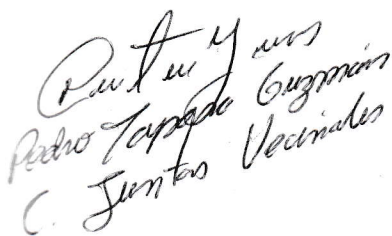 Pedro Tapada Guzmán
C. Juntas Vecinales